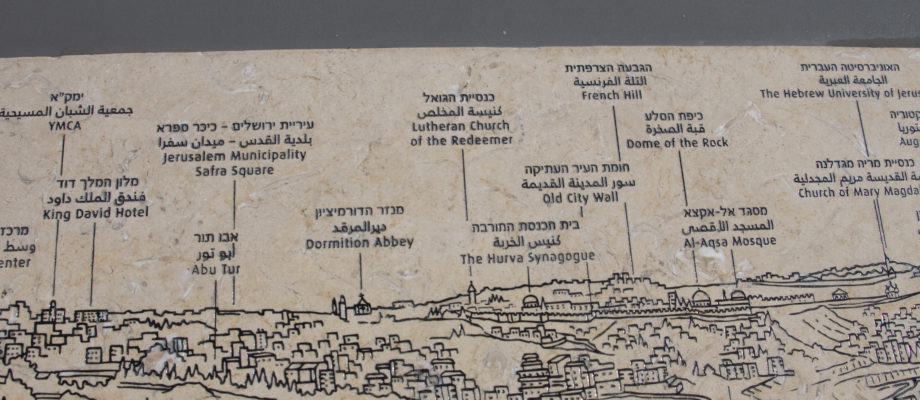 ימק"א
جمعية الشبان المسيحية
YMCA
מלון המלך דוד
فندق الملك داود
King David Hotel
מרכז
وسط
enter
עיריית ירושלים – כיכר ספרא
بلدية القدس – ميدان سفرا
Jerusalem Municipality
Safra Square
אבו תור
أبو تور
Abu Tur
מנזר הדורמיציון
ديرالمرقد
Dormition Abbey
כנסיית הגואל
كنيسة المخلص
Lutheran Church
of the Redeemer
בית הכנסת החורבה
كنيس الخربة
The Hurva Synagogue
הגבעה הצרפתית
التلة الفرنسية
French Hill
חומת העיר העתיקה
سور المدينة القديمة
Old City Wall
כיפת הסלע
قبة الصخرة
Dome of the Rock
מסגד אל-אקצא
المسجد الأقصى
Al-Aqsa Mosque
האוניברסיטה העברית
الجامعة العبرية
The Hebrew University of Jerus
כנסיית מריה מגדלנה
القديسة مريم المجدلية
Church of Mary Magda
Aug